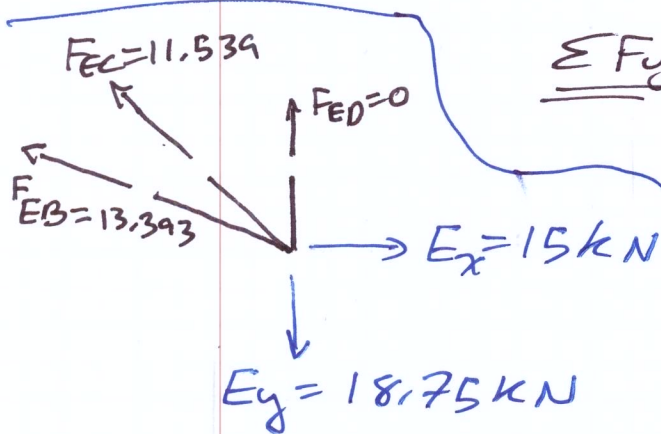 F_EC=11,539
ΣFy
F_ED=0
F_EB=13,393
E_x=15kN
Ey=18,75kN